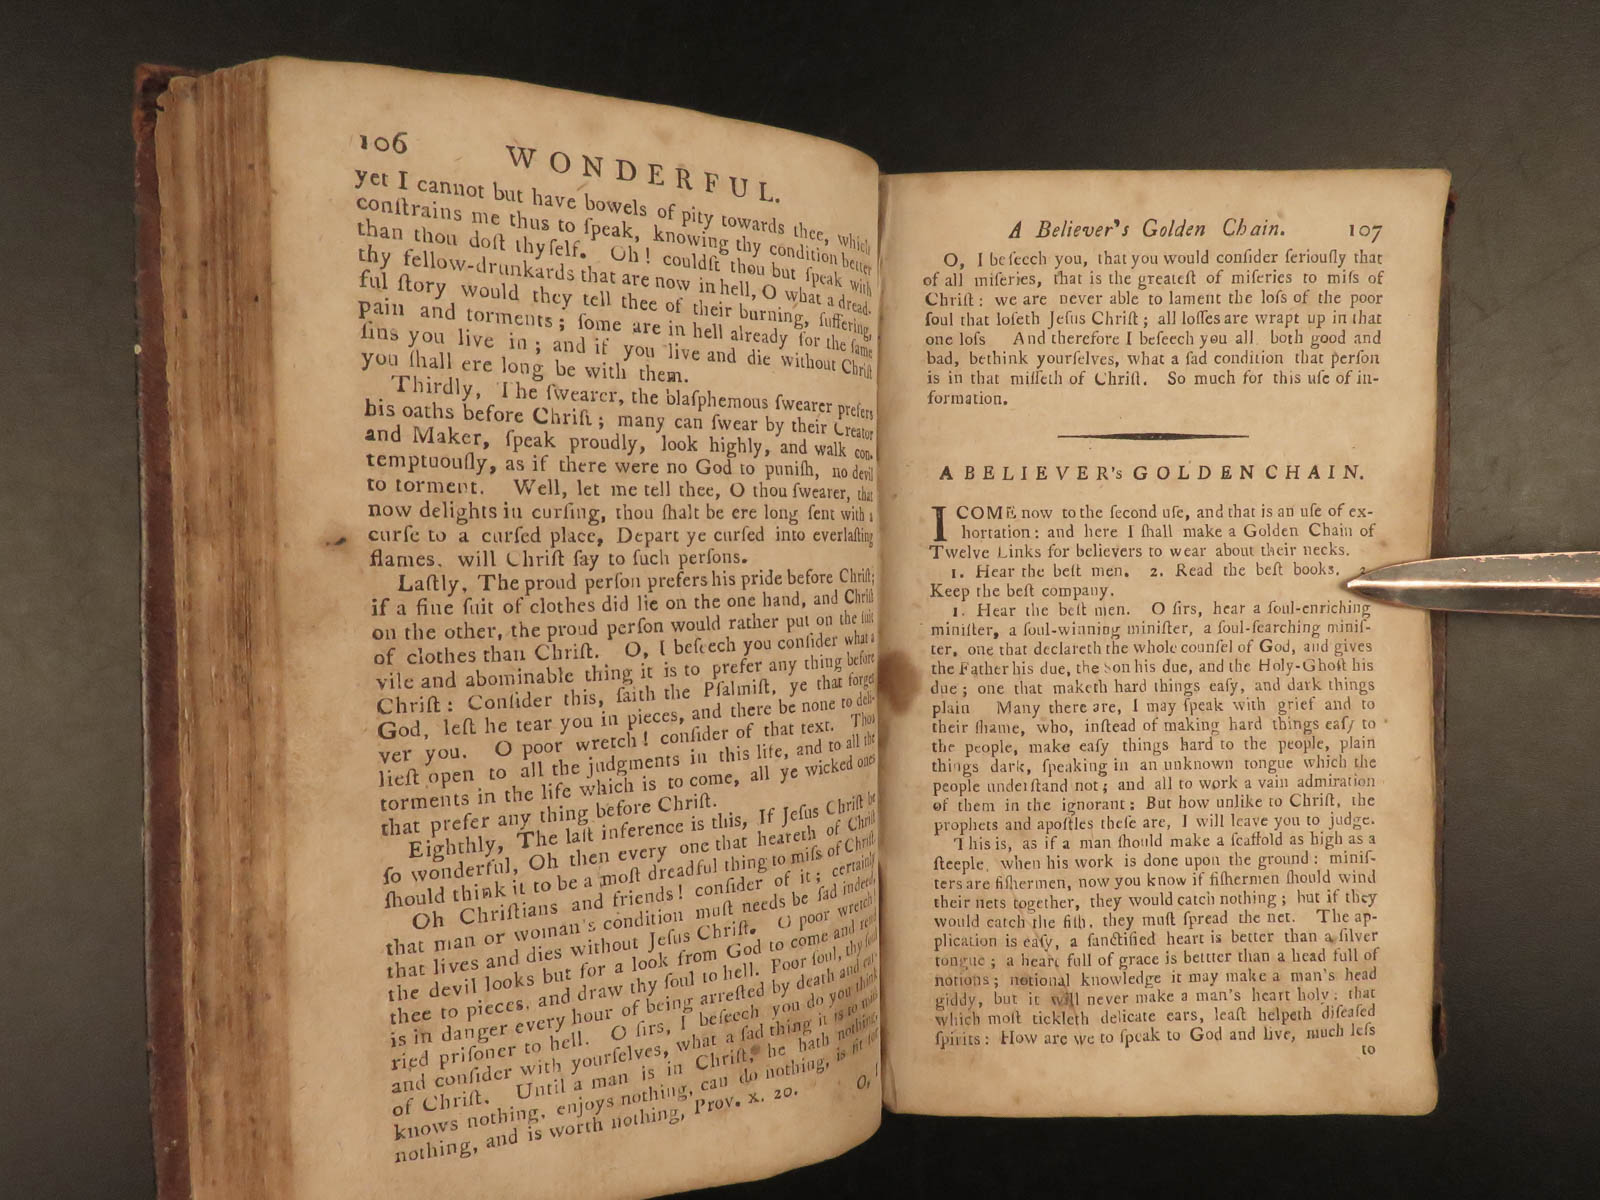 106
WONDERFUL.
yet I cannot but have bowels of pity towards thee, which
conſtrains me thus to ſpeak, knowing thy condition better
than thou doſt thyſelf. Oh! couldſt thou but ſpeak with
thy fellow-drunkards that are now in hell, O what a dread-
ful ſtory would they tell thee of their burning, ſuffering,
pain and torments; ſome are in hell already for the ſame
ſins you live in; and if you live and die without Chriſt
you ſhall ere long be with them.
Thirdly, The ſwearer, the blaſphemous ſwearer prefers
his oaths before Chriſt; many can ſwear by their Creator
and Maker, ſpeak proudly, look highly, and walk con-
temptuouſly, as if there were no God to puniſh, no devil
to torment. Well, let me tell thee, O thou ſwearer, that
now delights in curſing, thou ſhalt be ere long ſent with a
curſe to a curſed place, Depart ye curſed into everlaſting
flames, will Chriſt ſay to ſuch perſons.
Laſtly, The proud perſon prefers his pride before Chriſt;
if a fine ſuit of clothes did lie on the one hand, and Chriſt
on the other, the proud perſon would rather put on the ſuit
of clothes than Chriſt. O, I beſeech you conſider what a
vile and abominable thing it is to prefer any thing before
Chriſt: Conſider this, ſaith the Pſalmiſt, ye that forget
God, leſt he tear you in pieces, and there be none to deli-
ver you. O poor wretch! conſider of that text. Thou
lieſt open to all the judgments in this life, and to all the
torments in the life which is to come, all ye wicked ones
that prefer any thing before Chriſt.
Eighthly, The laſt inference is this, If Jeſus Chriſt be
ſo wonderful, Oh then every one that heareth of Chriſt
ſhould think it to be a moſt dreadful thing to miſs of Chriſt.
Oh Chriſtians and friends! conſider of it; certainly
that man or woman's condition muſt needs be ſad indeed,
that lives and dies without Jeſus Chriſt. O poor wretch!
the devil looks but for a look from God to come and rend
thee to pieces, and draw thy ſoul to hell. Poor ſoul, thy ſoul
is in danger every hour of being arreſted by death and car-
ried priſoner to hell. O ſirs, I beſeech you do you think
and conſider with yourſelves, what a ſad thing it is to miſs
of Chriſt. Until a man is in Chriſt, he hath nothing,
knows nothing, enjoys nothing, can do nothing, is fit for
nothing, and is worth nothing, Prov. x. 20.
O, I
A Believer's Golden Chain. 107
O, I beſeech you, that you would conſider ſeriouſly that
of all miſeries, that is the greateſt of miſeries to miſs of
Chriſt: we are never able to lament the loſs of the poor
ſoul that loſeth Jeſus Chriſt; all loſſes are wrapt up in that
one loſs And therefore I beſeech you all both good and
bad, bethink yourſelves, what a ſad condition that perſon
is in that miſſeth of Chriſt. So much for this uſe of in-
formation.
A BELIEVER's GOLDEN CHAIN.
I COME now to the ſecond uſe, and that is an uſe of ex-
hortation: and here I ſhall make a Golden Chain of
Twelve Links for believers to wear about their necks.
1. Hear the beſt men. 2. Read the beſt books. 3.
Keep the beſt company.
1. Hear the beſt men. O ſirs, hear a ſoul-enriching
miniſter, a ſoul-winning miniſter, a ſoul-ſearching miniſ-
ter, one that declareth the whole counſel of God, and gives
the Father his due, the Son his due, and the Holy-Ghoſt his
due; one that maketh hard things eaſy, and dark things
plain Many there are, I may ſpeak with grief and to
their ſhame, who, inſtead of making hard things eaſy to
the people, make eaſy things hard to the people, plain
things dark, ſpeaking in an unknown tongue which the
people underſtand not; and all to work a vain admiration
of them in the ignorant: But how unlike to Chriſt, the
prophets and apoſtles theſe are, I will leave you to judge.
This is, as if a man ſhould make a ſcaffold as high as a
ſteeple, when his work is done upon the ground: miniſ-
ters are fiſhermen, now you know if fiſhermen ſhould wind
their nets together, they would catch nothing; but if they
would catch the fiſh, they muſt ſpread the net. The ap-
plication is eaſy, a ſanctified heart is better than a ſilver
tongue; a heart full of grace is bettter than a head full of
notions; notional knowledge it may make a man's head
giddy, but it will never make a man's heart holy: that
which moſt tickleth delicate ears, leaſt helpeth diſeaſed
ſpirits: How are we to ſpeak to God and live, much leſs
to